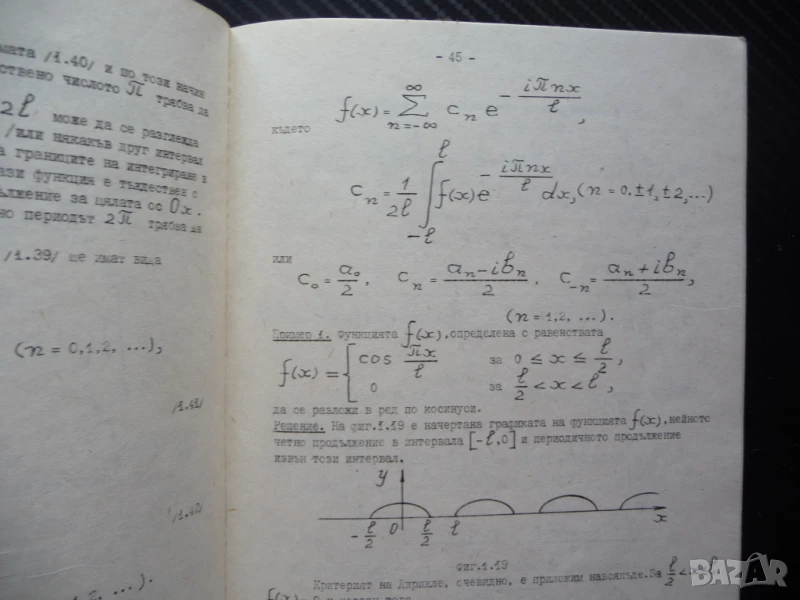 мата /1.40/ и по този начин
ствено числото П трябва да
2l може да се разглежда
/или някакъв друг интервал
а границите на интегриране в
ази функция е тъждествен с
дължение за цялата ос Ox.
но периодът 2П трябва да
/1.39/ ще имат вида
(n = 0,1,2, ...),
/1.41/
/1.42/
,2, ...).
- 45 -
f(x) = ∑_{n=-∞}^{∞} c_n e^{-iПnx/l},
където
c_n = 1/2l ∫_{-l}^{l} f(x)e^{-iПnx/l} dx, (n = 0, ±1, ±2, ...)
или
c_0 = a_0/2, c_n = (a_n - ib_n)/2, c_{-n} = (a_n + ib_n)/2,
(n = 1,2, ...).
Пример 1. Функцията f(x), определена с равенствата
f(x) = { cos Пx/l за 0 ≤ x ≤ l/2,
0 за l/2 < x < l,
да се разложи в ред по косинуси.
Решение. На фиг.1.19 е начертана графиката на функцията f(x), нейното
четно продължение в интервала [-l,0] и периодичното продължение
извън този интервал.
y
-l/2 0 l/2 l x
Фиг.1.19
Критерият на Дирихле, очевидно, е приложим навсякъде. За l/2 < x < l
Bazar.bg